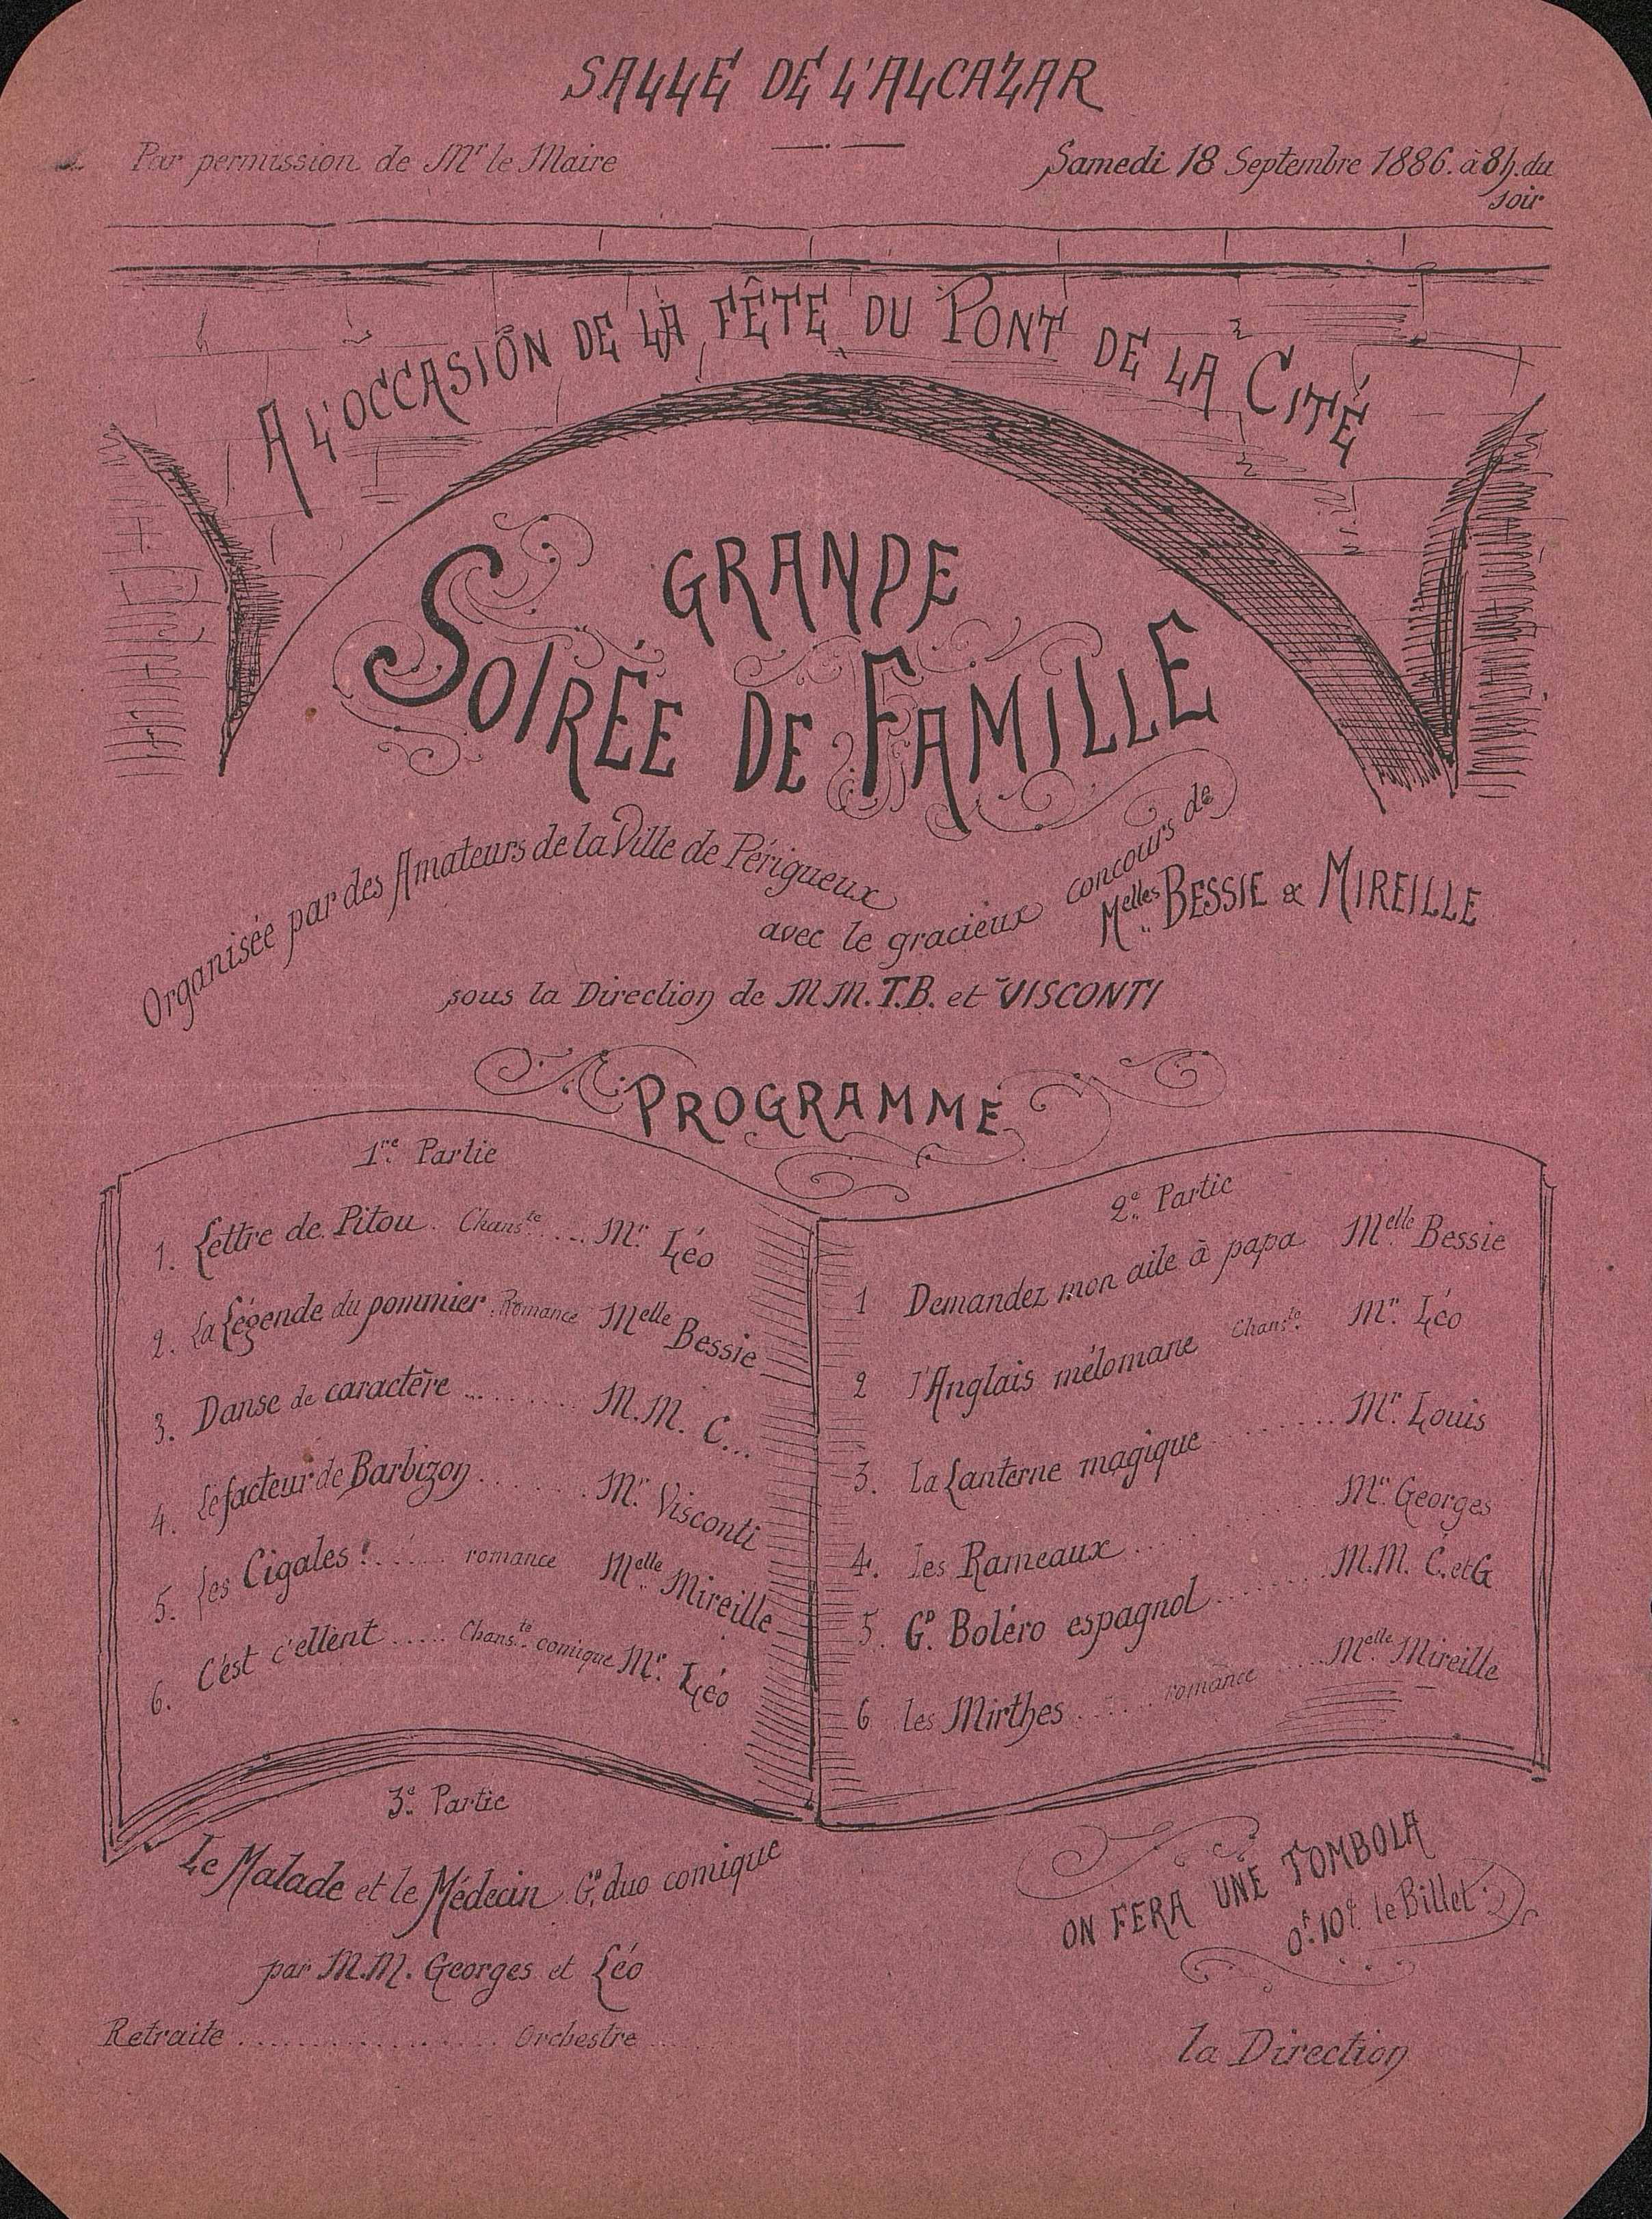 SALLE DE L'ALCAZAR
Par permission de Mr le Maire
Samedi 18 Septembre 1886. à 8h. du
soir
A L'OCCASION DE LA FÊTE DU PONT DE LA CITÉ
GRANDE
SOIRÉE DE FAMILLE
Organisée par des Amateurs de la Ville de Périgueux
avec le gracieux concours de
Melles BESSIE & MIREILLE
sous la Direction de M.M. T.B. et VISCONTI
PROGRAMME
1re Partie
1. Lettre de Pitou. Chanste .... Mr. Léo
2. La Légende du pommier. Romance Melle Bessie
3. Danse de caractère ......... M.M. C...
4. Le facteur de Barbizon ........ Mr. Visconti
5. Les Cigales ! ...... romance Melle Mireille
6. C'est c'ellent ..... Chanste comique Mr. Léo
2e Partie
1 Demandez mon aile à papa Melle Bessie
2 l'Anglais mélomane Chanste Mr. Léo
3. La Lanterne magique ......... Mr. Louis
4. les Rameaux ......... Mr. Georges
5. Gd Boléro espagnol ......... M.M. C. et G
6 les Mirthes ....... romance ..... Melle Mireille
3e Partie
Le Malade et le Médecin Gd duo comique
par M.M. Georges et Léo
Retraite .................. Orchestre ....
ON FERA UNE TOMBOLA
0f. 10c. le Billet.
la Direction